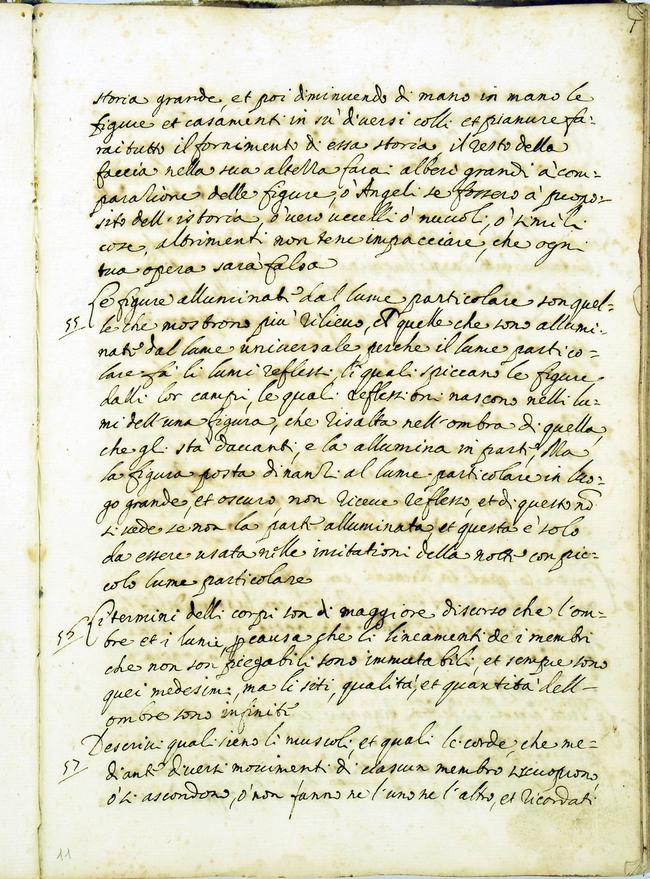 storia grande, et poi diminuendo di mano in mano le
figure et casamenti in su diversi colli et pianure fa=
rai tutto il fornimento di essa storia, il resto della
faccia nella sua altezza farai alberi grandi à com=
paratione delle figure, ò Angeli se fossero à propo=
sito dell'istoria, ò vero uccelli ò nuvoli, ò simili
cose, altrimenti non te ne impacciare, che ogni
tua opera sarà falsa
55 Le figure alluminate dal lume particolare son quel=
le che mostrono più rilievo, che quelle che sono allumi=
nate dal lume universale perche il lume partico=
lare fà li lumi reflessi, li quali spiccano le figure
dalli lor campi, le quali reflessioni nascono nelli lu=
mi dell'una figura, che risalta nell'ombra di quella,
che gli stà davanti, e la allumina in parte, Ma
la figura posta dinanzi al lume particolare in luo=
go grande, et oscuro, non riceve reflesso, et di questo nō
si vede se non la parte alluminata, et questa è solo
da essere usata nelle imitationi della notte con pic=
colo lume particolare
56 Li termini delli corpi son di maggiore discorso che l'om=
bre et i lumi, p causa che li lineamenti de i membri
che non son piegabili sono immutabili, et sempre sono
quei medesimi, ma li siti, qualità, et quantità dell=
ombre sono infinite
57 Descrivi quali sieno li muscoli, et quali le corde, che me=
diante diversi movimenti di ciascun membro si scuoprono,
ò si ascondono, ò non fanno ne l'uno ne l'altro, et ricordati
11